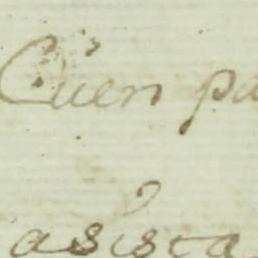 Cüen pa
asista